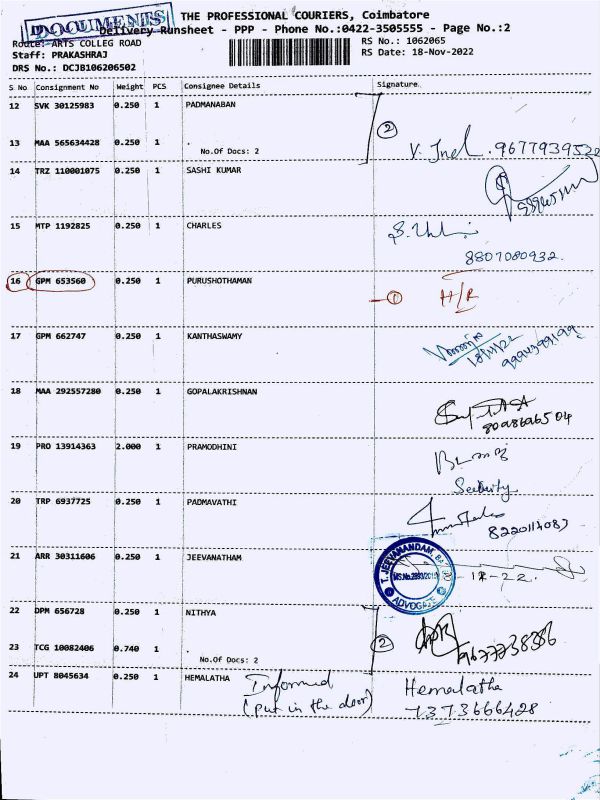 DOCUMENTS
THE PROFESSIONAL COURIERS, Coimbatore
Delivery Runsheet - PPP - Phone No.:0422-3505555 - Page No.:2
Route: ARTS COLLEG ROAD
RS No.: 1062065
Staff: PRAKASHRAJ
RS Date: 18-Nov-2022
DRS No.: DCJB106206502
S No Consignment No Weight PCS Consignee Details Signature
12 SVK 30125983 0.250 1 PADMANABAN
2
13 MAA 565634428 0.250 1 .
No.Of Docs: 2
14 TRZ 110001075 0.250 1 SASHI KUMAR
15 MTP 1192825 0.250 1 CHARLES
8807080932.
16 GPM 653560 0.250 1 PURUSHOTHAMAN 1 H/R
17 GPM 662747 0.250 1 KANTHASWAMY
18/11/22
18 MAA 292557280 0.250 1 GOPALAKRISHNAN
19 PRO 13914363 2.000 1 PRAMODHINI
Security
20 TRP 6937725 0.250 1 PADMAVATHI
21 ARR 30311606 0.250 1 JEEVANATHAM
T. JEEVANANDAM
ADVOCATE
22 DPM 656728 0.250 1 NITHYA
2
23 TCG 10082406 0.740 1 .
No.Of Docs: 2
24 UPT 8045634 0.250 1 HEMALATHA Informed Hemalatha
(put in the door) 7373666428